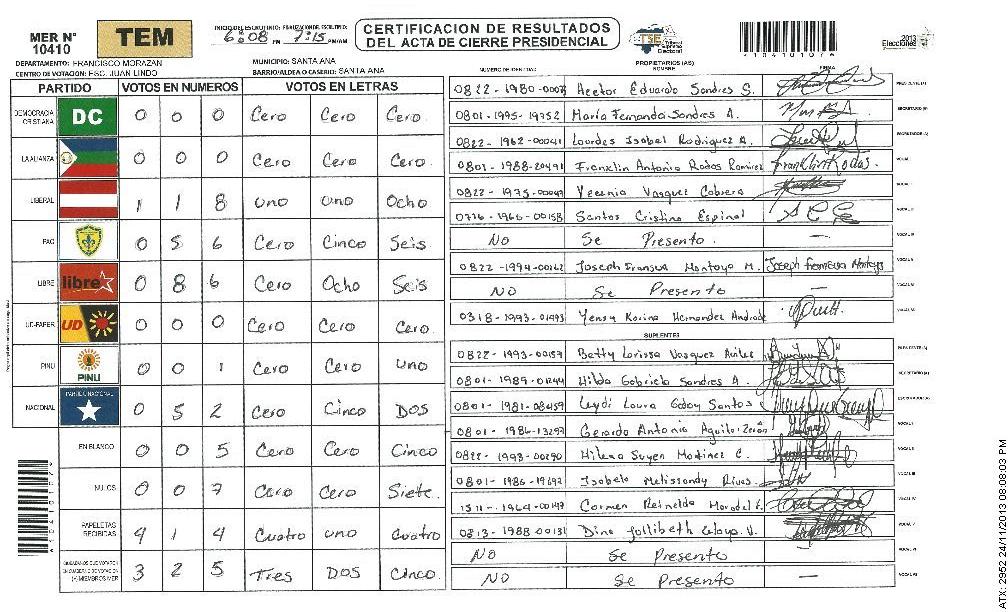 MER N° 10410
TEM
INICIO DEL ESCRUTINIO: 6:08 PM FINALIZACION DEL ESCRUTINIO: 7:15 PM/AM
CERTIFICACION DE RESULTADOS
DEL ACTA DE CIERRE PRESIDENCIAL
TSE Tribunal Supremo Electoral
2013 Elecciones
DEPARTAMENTO: FRANCISCO MORAZAN
MUNICIPIO: SANTA ANA
CENTRO DE VOTACION: ESC. JUAN LINDO
BARRIO/ALDEA O CASERIO: SANTA ANA
PARTIDO VOTOS EN NUMEROS VOTOS EN LETRAS
DEMOCRACIA CRISTIANA DC 0 0 0 Cero Cero Cero
LA ALIANZA 0 0 0 Cero Cero Cero
LIBERAL 1 1 8 uno uno Ocho
PAC 0 5 6 Cero Cinco Seis
LIBRE libre 0 8 6 Cero Ocho Seis
UD-FAPER UD 0 0 0 Cero Cero Cero
PINU PINU 0 0 1 Cero Cero uno
NACIONAL PARTIDO NACIONAL 0 5 2 Cero Cinco DOS
EN BLANCO 0 0 5 Cero Cero Cinco
NULOS 0 0 7 Cero Cero Siete
PAPELETAS RECIBIDAS 4 1 4 Cuatro uno Cuatro
CIUDADANOS QUE VOTARON EN CUADERNO DE VOTACION (+) MIEMBROS MER 3 2 5 Tres DOS Cinco
PROPIETARIOS (AS)
NUMERO DE IDENTIDAD NOMBRE FIRMA
0822-1980-0007 Hector Eduardo Sondres S. PRESIDENTE(A)
0801-1995-19752 María Fernanda Sondres A. SECRETARIO(A)
0822-1962-00041 Lourdes Isabel Rodriguez A. ESCRUTADOR(A)
0801-1988-20491 Franklin Antonio Rodas Ramirez VOCAL I
0822-1975-00047 Yecenia Vasquez Cabrera
0716-1960-00158 Santos Cristina Espinal
NO Se Presento. —
0822-1994-00262 Joseph Fransua Montoya M.
NO Se Presento —
0318-1993-01493 Yensy Karina Hernandez Andrade
SUPLENTES
0822-1993-00157 Betty Larissa Vasquez Aviles PRESIDENTE(A)
0801-1989-01244 Hilda Gabriela Sondres A. SECRETARIO(A)
0801-1981-08459 Leydi Laura Godoy Santos ESCRUTADOR(A)
0801-1986-13297 Gerardo Antonio Aguilar VOCAL I
0822-1993-00290 Hilena Suyen Martinez C.
0801-1986-19697 Isabela Melissandy Rivas
1511-1964-00147 Carmen Reinelda
0813-1988-00131 Dina Jollibeth Celaya V.
NO Se Presento
NO Se Presento —
ATX: 2952 24/11/2013 08:08:03 PM